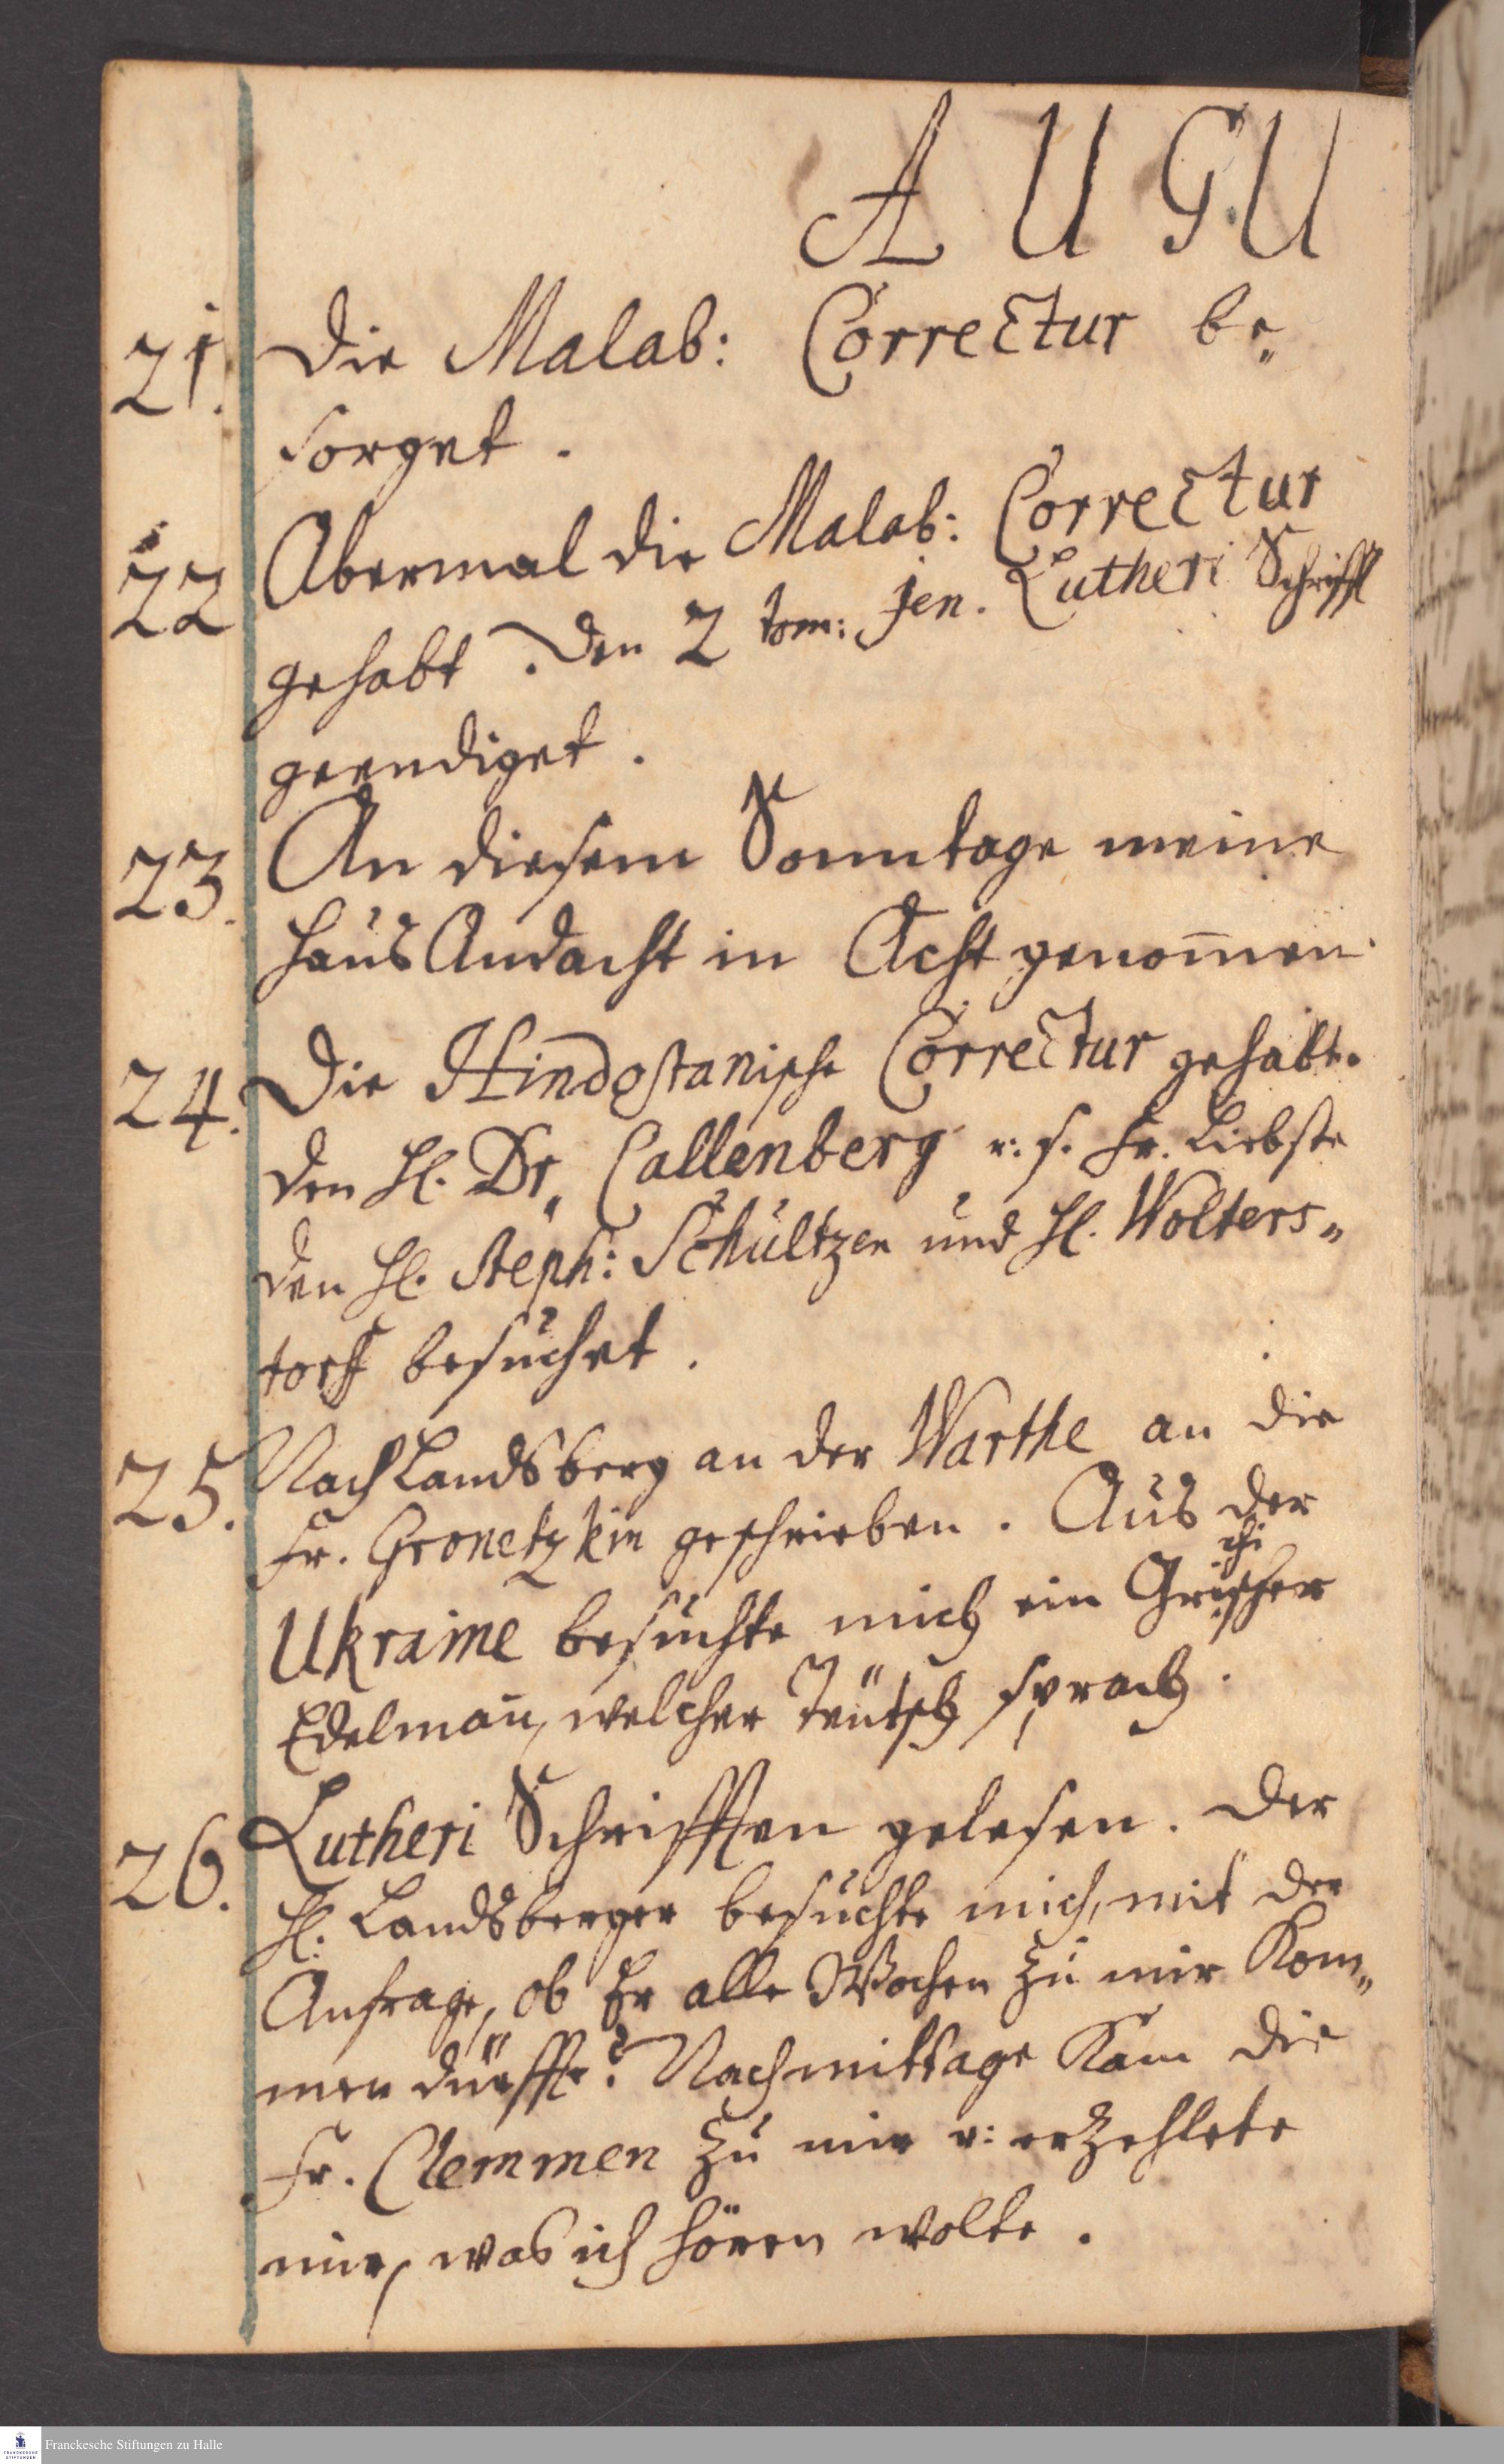 AUGU
21. Die Malab: Correctur be„
sorget.
22 Abermal die Malab: Correctur
gehabt. Den 2 tom: jen. Lutheri Schrifft
geendiget.
23. An diesem Sonntage meine
Haus Andacht in Acht genom̅en.
24. Die Hindostanische Correctur gehabt.
den H. Dr. Callenberg u: s. Fr. Liebste
den H. Steph: Schultzen und H. Wolters„
torff besuchet.
25. Nach Landsberg an der Warthe an die
Fr. Gronetzkin geschrieben. Aus der
Ukraine besuchte mich ein Grichischer
Edelman̅, welcher Teütsch sprach.
26. Lutheri Schrifften gelesen. Der
H. Landsberger besuchte mich, mit der
Anfrage, ob Er alle Wochen zu mir Kom„
men dürffte? Nachmittage Kam die
Fr. Clemmen zu mir u: erzehlete
mir, was ich hören wolte.
Franckesche Stiftungen zu Halle